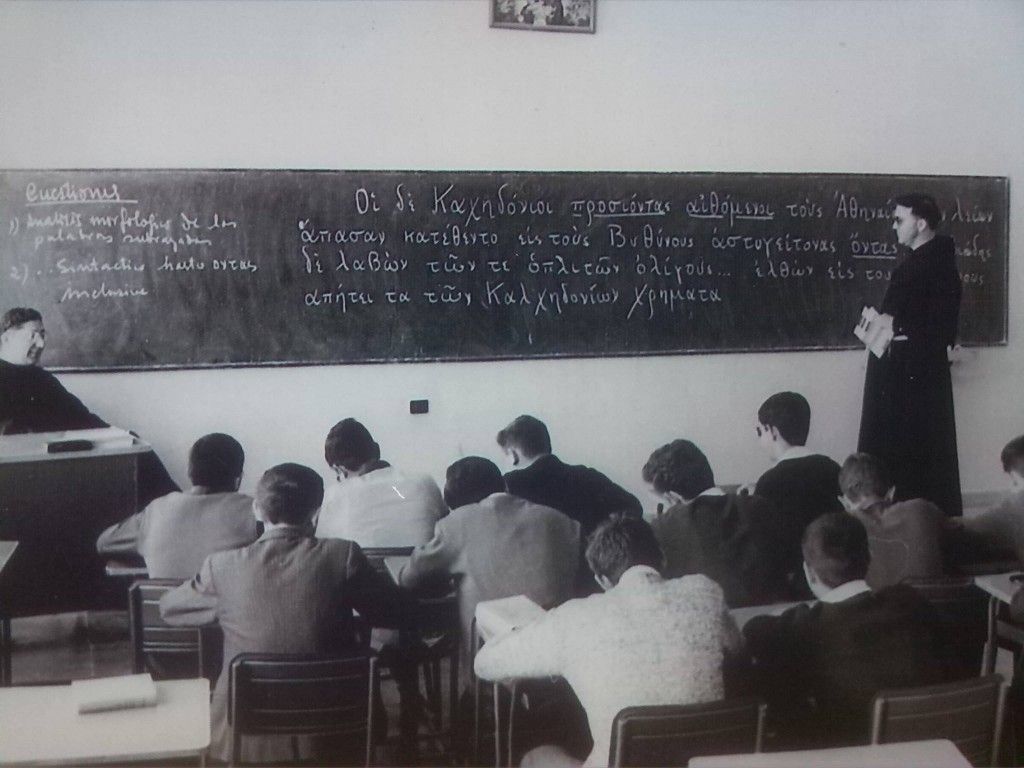 Cuestiones
1) Análisis morfológico de las
palabras subrayadas
2) .. Sintactico hasta οντας
inclusive
Οἱ δὲ Καχηδόνιοι προσιόντας αἰθόμενοι τοὺς Ἀθηναί λείαν
ἅπασαν κατέθεντο εἰς τοὺς Βυθύνους ἀστυγείτονας ὄντας
δὲ λαβὼν τῶν τε ὁπλιτῶν ὀλίγους... ἐλθὼν εἰς του
απῄτει τα τῶν Καλχηδονίων χρηματα